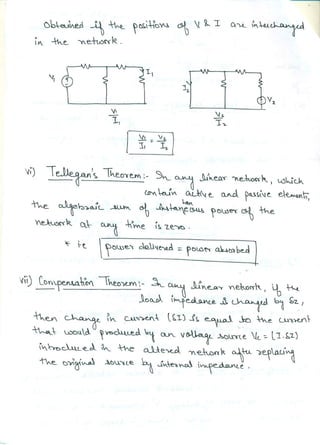 Obtained if the positions of V & I are interchanged
in the network.
V₁
I₁
I₂
V₂
V₁/I₁
V₂/I₂
V₁/I₁ = V₂/I₂
vi) Tellegan's Theorem:- In any linear network, which
contain active and passive elements,
the algebraic sum of instantaneous power of the
network at any time is zero.
* ie power delivered = power absorbed
vii) Compensation Theorem:- In any linear network, if the
load impedance is changed by δZ,
then change in current (δI) is equal to the current
that would produced by an voltage source Vc = (I.δZ)
introduced in the altered network after replacing
the original source by internal impedance.